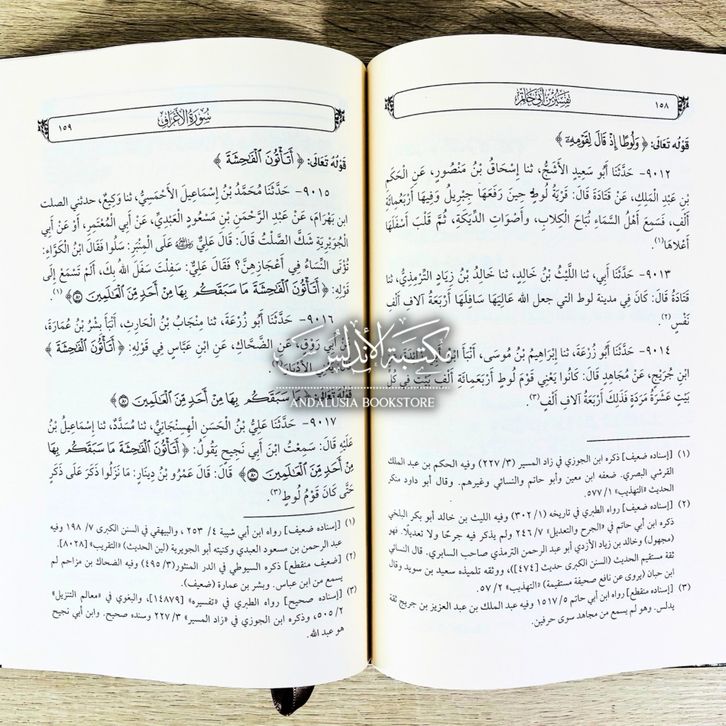 ١٥٨
تفسير ابن أبي حاتم
قَوْلُهُ تَعَالَى: ﴿ وَلُوطًا إِذْ قَالَ لِقَوْمِهِۦٓ ﴾
٩٠١٢- حَدَّثَنَا أَبُو سَعِيدٍ الأَشَجُّ، ثنا إِسْحَاقُ بْنُ مَنْصُورٍ، عَنِ الْحَكَمِ
بْنِ عَبْدِ الْمَلِكِ، عَنْ قَتَادَةَ قَالَ: قَرْيَةُ لُوطٍ حِينَ رَفَعَهَا جِبْرِيلُ وَفِيهَا أَرْبَعُمِائَةِ
أَلْفٍ، فَسَمِعَ أَهْلُ السَّمَاءِ نُبَاحَ الْكِلَابِ، وَأَصْوَاتَ الدِّيَكَةِ، ثُمَّ قَلَبَ أَسْفَلَهَا
أَعْلَاهَا(١).
٩٠١٣- حَدَّثَنَا أَبِي، ثنا اللَّيْثُ بْنُ خَالِدٍ، ثنا خَالِدُ بْنُ زِيَادٍ التِّرْمِذِيُّ، عَنْ
قَتَادَةَ قَالَ: كَانَ فِي مدينة لوط التي جعل الله عَالِيَهَا سَافِلَهَا أَرْبَعَةُ آلافِ أَلْفِ
نَفْسٍ(٢).
٩٠١٤- حَدَّثَنَا أَبُو زُرْعَةَ، ثنا إِبْرَاهِيمُ بْنُ مُوسَى، أَنْبَأَ ابْنُ أَبِي زَائِدَةَ، عَنِ
ابْنِ جُرَيْجٍ، عَنْ مُجَاهِدٍ قَالَ: كَانُوا يَعْنِي قَوْمَ لُوطٍ أَرْبَعَمِائَةِ أَلْفِ بَيْتٍ فِي كُلِّ
بَيْتٍ عَشْرَةُ مَرَدَةٍ فَذَلِكَ أَرْبَعَةُ آلافِ أَلْفٍ(٣).
(١) [إسناده ضعيف] ذكره ابن الجوزي في زاد المسير (٣/ ٢٢٧) وفيه الحكم بن عبد الملك
القرشي البصري. ضعفه ابن معين وأبو حاتم والنسائي وغيرهم. وقال أبو داود منكر
الحديث «التهذيب» ١/ ٥٧٧.
(٢) [إسناده ضعيف] رواه الطبري في تاريخه (١/ ٣٠٢) وفيه الليث بن خالد أبو بكر البلخي
ذكره ابن أبي حاتم في «الجرح والتعديل» ٧/ ٢٤٦ ولم يذكر فيه جرحًا ولا تعديلًا. فهو
(مجهول) وخالد بن زياد الأزدي أبو عبد الرحمن الترمذي صاحب السابري. قال النسائي
ثقة مستقيم الحديث (السنن الكبرى حديث [٤٧٤])، ووثقه تلميذه سعيد بن سويد وقال
ابن حبان (يروى عن نافع صحيفة مستقيمة) «التهذيب» ٢/ ٥٧.
(٣) [إسناده منقطع] رواه ابن أبي حاتم ٥/ ١٥١٧ وفيه عبد الملك بن عبد العزيز بن جريج ثقة
يدلس. وهو لم يسمع من مجاهد سوى حرفين.
سُورَةُ الأَعْرَافِ
١٥٩
قَوْلُهُ تَعَالَى: ﴿ أَتَأْتُونَ الْفَاحِشَةَ ﴾
٩٠١٥- حَدَّثَنَا مُحَمَّدُ بْنُ إِسْمَاعِيلَ الأَحْمَسِيُّ، ثنا وَكِيعٌ، حدثني الصلت
ابن بَهْرَامَ، عَنْ عَبْدِ الرَّحْمَنِ بْنِ مَسْعُودٍ الْعَبْدِيِّ، عَنْ أَبِي الْمُعْتَمِرِ، أَوْ عَنْ أَبِي
الْجُوَيْرِيَةِ شَكَّ الصَّلْتُ قَالَ: قَالَ عَلِيٌّ عَلَى الْمِنْبَرِ: سَلُوا فَقَالَ ابْنُ الْكَوَّاءِ:
تُؤْتَى النِّسَاءُ فِي أَعْجَازِهِنَّ؟ فَقَالَ عَلِيٌّ: سَفِلْتَ سَفَلَ اللهُ بِكَ، أَلَمْ تَسْمَعْ إِلَى
قَوْلِهِ: ﴿ أَتَأْتُونَ الْفَاحِشَةَ مَا سَبَقَكُم بِهَا مِنْ أَحَدٍ مِّنَ الْعَالَمِينَ ﴾(١).
٩٠١٦- حَدَّثَنَا أَبُو زُرْعَةَ، ثنا مِنْجَابُ بْنُ الْحَارِثِ، أَنْبَأَ بِشْرُ بْنُ عُمَارَةَ،
أَبِي رَوْقٍ، عَنِ الضَّحَّاكِ، عَنِ ابْنِ عَبَّاسٍ فِي قَوْلِهِ: ﴿ أَتَأْتُونَ الْفَاحِشَةَ ﴾
مكتبة الأندلس
ANDALUSIA BOOKSTORE
قَوْلُهُ تَعَالَى: ﴿ مَا سَبَقَكُم بِهَا مِنْ أَحَدٍ مِّنَ الْعَالَمِينَ ﴾
٩٠١٧- حَدَّثَنَا عَلِيُّ بْنُ الْحَسَنِ الْهِسِنْجَانِيُّ، ثنا مُسَدَّدٌ، ثنا إِسْمَاعِيلُ بْنُ
عُلَيَّةَ قَالَ: سَمِعْتُ ابْنَ أَبِي نَجِيحٍ يَقُولُ: ﴿ أَتَأْتُونَ الْفَاحِشَةَ مَا سَبَقَكُم بِهَا
مِنْ أَحَدٍ مِّنَ الْعَالَمِينَ ﴾ قَالَ: قَالَ عَمْرُو بْنُ دِينَارٍ: مَا نَزَلُوا ذَكَرٌ عَلَى ذَكَرٍ
حَتَّى كَانَ قَوْمُ لُوطٍ(٣).
(١) [إسناده ضعيف] رواه ابن أبي شيبة ٤/ ٢٥٣، والبيهقي في السنن الكبرى ٧/ ١٩٨ وفيه
عبد الرحمن بن مسعود العبدي وكنيته أبو الجويرية (لين الحديث) «التقريب» [٨٠٢٨].
(٢) [ضعيف منقطع] ذكره السيوطي في الدر المنثور (٣/ ٤٩٥) وفيه الضحاك بن مزاحم لم
يسمع من ابن عباس. وبشر بن عمارة (ضعيف).
(٣) [إسناده صحيح] رواه الطبري في «تفسيره» [١٤٨٧٩]، والبغوي في «معالم التنزيل»
٢/ ٥٠٥، وذكره ابن الجوزي في «زاد المسير» ٣/ ٢٢٧ وسنده صحيح. وابن أبي نجيح
هو عبد الله.